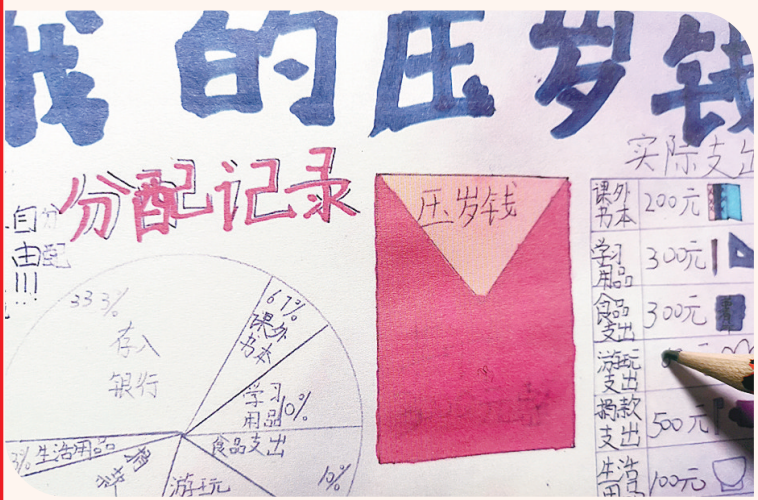 我的压岁钱
分配记录
自分
由配
!!!
33.3%
存入
银行
6.7%
课外
书本
学习
用品
10%
食品支出
10%
游玩
3%
生活用品
压岁钱
实际支出
课外
书本
200元
学习
用品
300元
食品
支出
300元
游玩
支出
捐款
支出
500元
生活
用品
100元